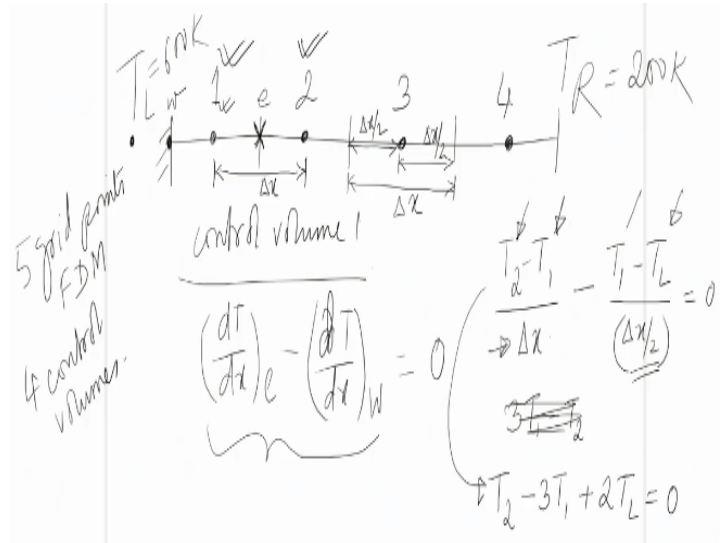 T_L = 600K
w 1 e 2 3 4
T_R = 200K
Δx/2 Δx/2
Δx
Δx
5 grid points
FDM
4 control
volumes.
control volume 1
(dT/dx)_e - (dT/dx)_w = 0
(T_2 - T_1)/Δx - (T_1 - T_L)/(Δx/2) = 0
T_2 - 3T_1 + 2T_L = 0